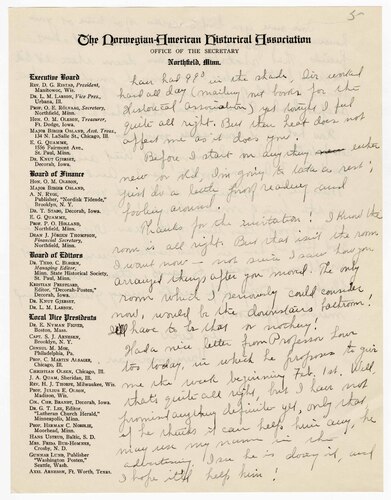 5-
The Norwegian-American Historical Association
OFFICE OF THE SECRETARY
Northfield, Minn.
Executive Board
REV. D. G. RISTAD, President,
Manitowoc, Wis.
DR. L. M. LARSON, Vice Pres.,
Urbana, Ill.
PROF. O. E. RÖLVAAG, Secretary,
Northfield, Minn.
HON. O. M. OLESON, Treasurer,
Ft. Dodge, Iowa.
MAJOR BIRGER OSLAND, Asst. Treas.
134 N. LaSalle St., Chicago, Ill.
E. G. QUAMME,
1556 Fairmont Ave.
St. Paul, Minn.
DR. KNUT GJERSET,
Decorah, Iowa.
Board of Finance
HON. O. M. OLESON,
MAJOR BIRGER OSLAND,
A. N. RYGG,
Publisher, "Nordisk Tidende,"
Brooklyn, N. Y.
DR. T. STABO, Decorah, Iowa.
E. G. QUAMME,
PROF. P. O. HOLLAND,
Northfield, Minn.
DEAN J. JÖRGEN THOMPSON,
Financial Secretary,
Northfield, Minn.
Board of Editors
DR. THEO. C. BLEGEN,
Managing Editor,
Minn. State Historical Society,
St. Paul, Minn.
KRISTIAN PRESTGARD,
Editor, "Decorah-Posten,"
Decorah, Iowa.
DR. KNUT GJERSET,
DR. L. M. LARSON.
Local Vice Presidents
DR. E. KLYMAN FIGVED,
Boston, Mass.
CAPT. S. J. ARNESEN,
Brooklyn, N. Y.
CONSUL M. MOE,
Philadelphia, Pa.
PROF. C. MARTIN ALSAGER,
Chicago, Ill.
CHRISTIAN OLSEN, Chicago, Ill.
J. A. QUAM, Sheridan, Ill.
REV. H. J. THORPE, Milwaukee, Wis.
PROF. JULIUS E. OLSON,
Madison, Wis.
COL. CHR. BRANDT, Decorah, Iowa.
DR. G. T. LEE, Editor,
"Lutheran Church Herald,"
Minneapolis, Minn.
PROF. HERMAN C. NORDLIE,
Moorhead, Minn.
HANS USTRUD, Baltic, S. D.
MRS. FRIDA BUE-HOMNES,
Crosby, N. D.
GUNNAR LUND, Publisher
"Washington Posten,"
Seattle, Wash.
AXEL ARNESON, Ft. Worth, Texas.
have had 98° in the shade, I've worked
hard all day (mailing out books for the
Historical Association) yet tonight I feel
quite all right. But then heat does not
affect me as it does you!
Before I start on anything either
new or old, I'm going to take a rest;
just do a little proof reading and
fooling around.
Thanks for the invitation! I know the
room is all right. But that isn't the room
I want now – not since I saw how you
arranged things after you moved. The only
room which I seriously could consider
now, would be the downstairs bathroom!
I'll have to be that or nothing!
Had a nice letter from Professor
to day, in which he proposes to give
me the week beginning Feb. 1st. Well,
that's quite all right, but I have not
promised anything definite yet, only that
if he thinks I can help him any, he
may use my name in the
advertising. I see he is doing it, and
I hope it'll help him!